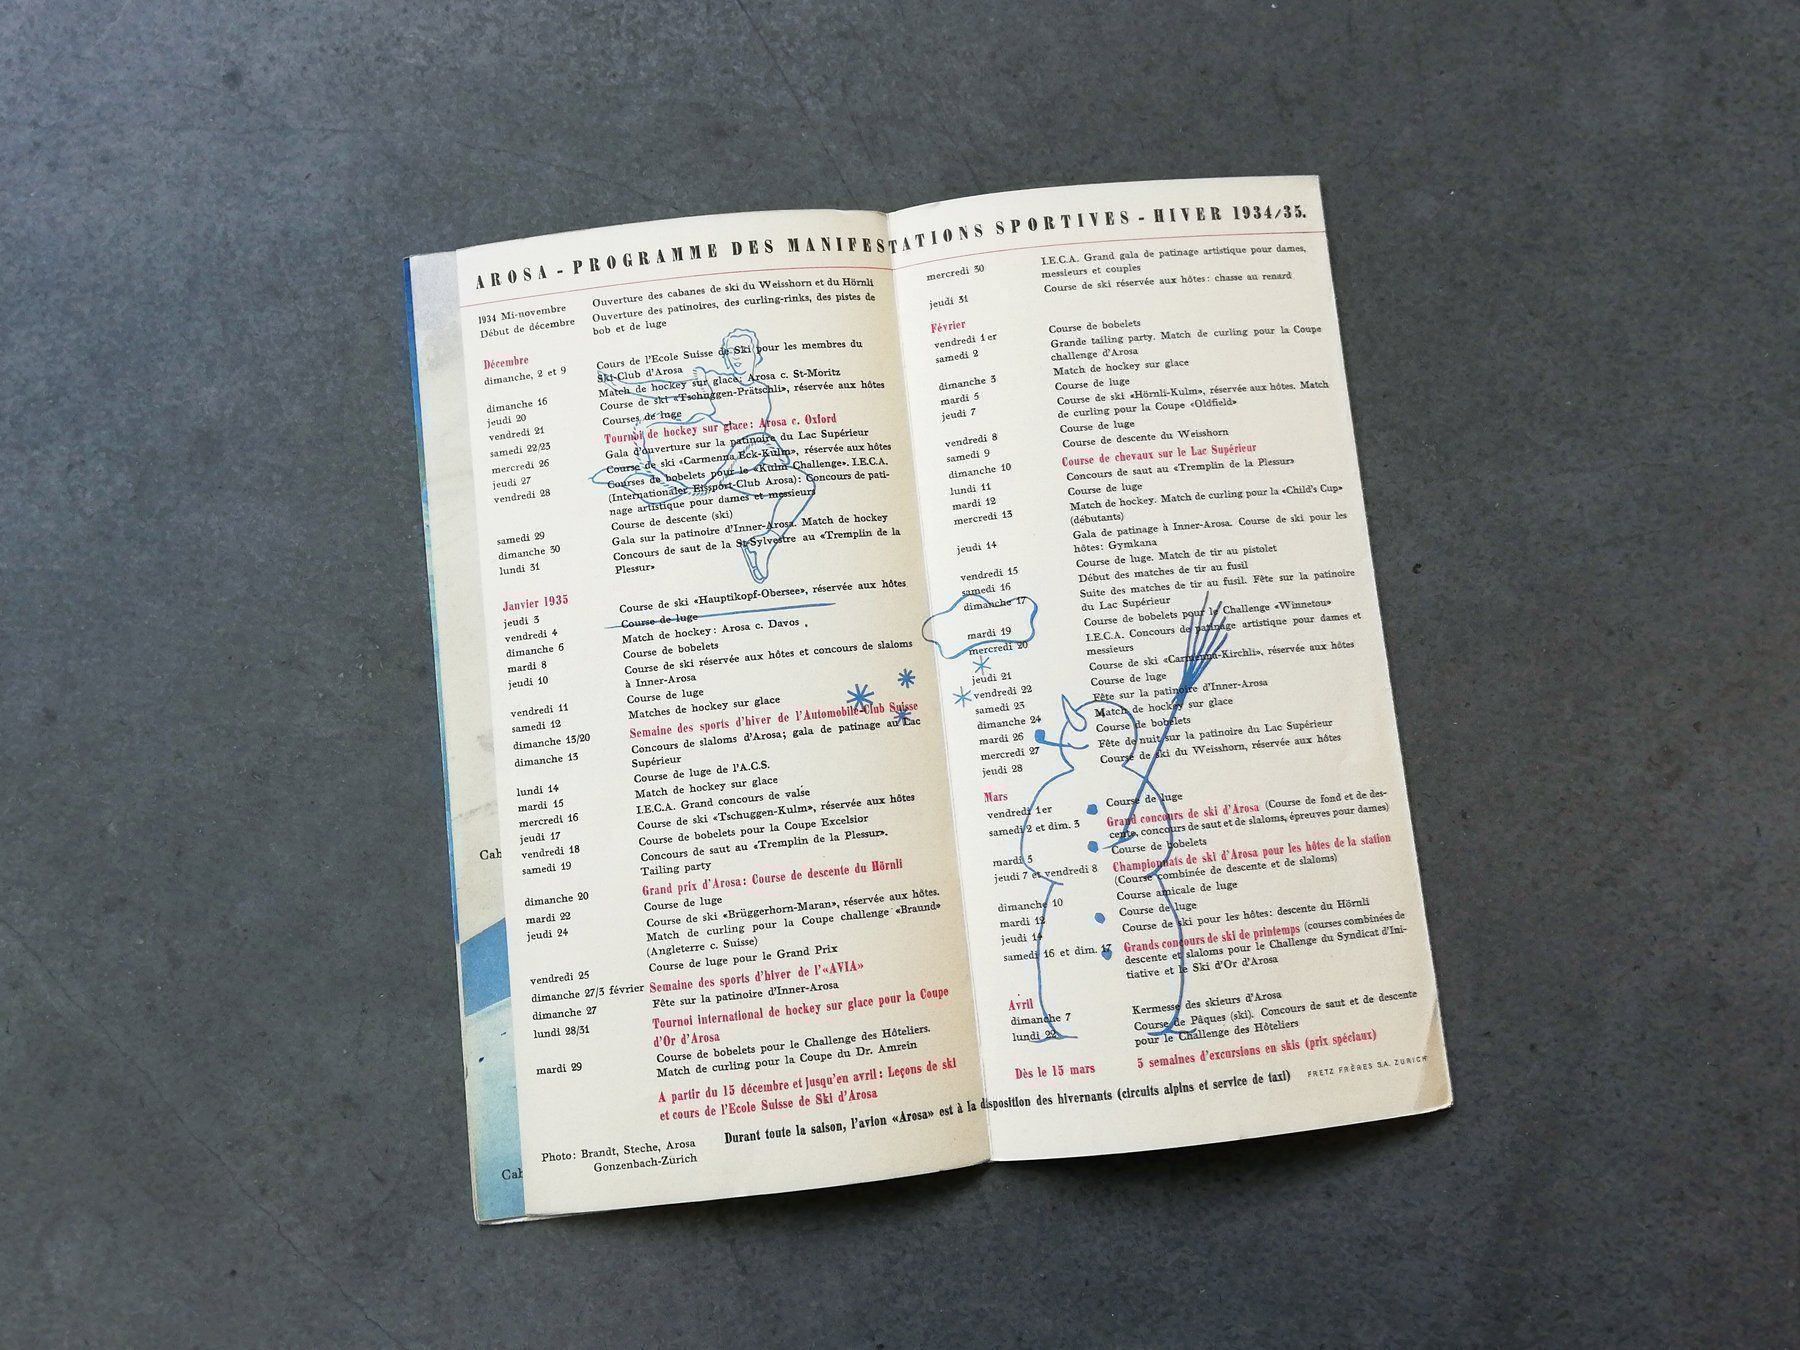 AROSA - PROGRAMME DES MANIFESTATIONS SPORTIVES - HIVER 1934/35.
1934 Mi-novembre Ouverture des cabanes de ski du Weisshorn et du Hörnli
Début de décembre Ouverture des patinoires, des curling-rinks, des pistes de
bob et de luge
Décembre
dimanche, 2 et 9 Cours de l'Ecole Suisse de Ski pour les membres du
Ski-Club d'Arosa
dimanche 16 Match de hockey sur glace: Arosa c. St-Moritz
jeudi 20 Course de ski «Tschuggen-Prätschli», réservée aux hôtes
vendredi 21 Courses de luge
samedi 22/23 Tournoi de hockey sur glace: Arosa c. Oxford
mercredi 26 Gala d'ouverture sur la patinoire du Lac Supérieur
jeudi 27 Course de ski «Carmenna Eck-Kulm», réservée aux hôtes
vendredi 28 Courses de bobelets pour le «Kulm Challenge». I.E.C.A.
(Internationaler Eissport-Club Arosa): Concours de pati-
nage artistique pour dames et messieurs
samedi 29 Course de descente (ski)
dimanche 30 Gala sur la patinoire d'Inner-Arosa. Match de hockey
lundi 31 Concours de saut de la St-Sylvestre au «Tremplin de la
Plessur»
Janvier 1935
jeudi 3 Course de ski «Hauptikopf-Obersee», réservée aux hôtes
vendredi 4 Course de luge
dimanche 6 Match de hockey: Arosa c. Davos
mardi 8 Course de bobelets
jeudi 10 Course de ski réservée aux hôtes et concours de slaloms
à Inner-Arosa
vendredi 11 Course de luge
samedi 12 Matches de hockey sur glace
dimanche 13/20 Semaine des sports d'hiver de l'Automobile-Club Suisse
dimanche 13 Concours de slaloms d'Arosa; gala de patinage au Lac
Supérieur
lundi 14 Course de luge de l'A.C.S.
mardi 15 Match de hockey sur glace
mercredi 16 I.E.C.A. Grand concours de valse
jeudi 17 Course de ski «Tschuggen-Kulm», réservée aux hôtes
vendredi 18 Course de bobelets pour la Coupe Excelsior
samedi 19 Concours de saut au «Tremplin de la Plessur».
Tailing party
dimanche 20 Grand prix d'Arosa: Course de descente du Hörnli
mardi 22 Course de luge
jeudi 24 Course de ski «Brüggerhorn-Maran», réservée aux hôtes.
Match de curling pour la Coupe challenge «Braund»
(Angleterre c. Suisse)
vendredi 25 Course de luge pour le Grand Prix
dimanche 27/3 février Semaine des sports d'hiver de l'«AVIA»
dimanche 27 Fête sur la patinoire d'Inner-Arosa
lundi 28/31 Tournoi international de hockey sur glace pour la Coupe
d'Or d'Arosa
mardi 29 Course de bobelets pour le Challenge des Hôteliers.
Match de curling pour la Coupe du Dr. Amrein
A partir du 15 décembre et jusqu'en avril: Leçons de ski
et cours de l'Ecole Suisse de Ski d'Arosa
mercredi 30 I.E.C.A. Grand gala de patinage artistique pour dames,
messieurs et couples
jeudi 31 Course de ski réservée aux hôtes: chasse au renard
Février
vendredi 1er Course de bobelets
samedi 2 Grande tailing party. Match de curling pour la Coupe
challenge d'Arosa
dimanche 3 Match de hockey sur glace
mardi 5 Course de luge
jeudi 7 Course de ski «Hörnli-Kulm», réservée aux hôtes. Match
de curling pour la Coupe «Oldfield»
vendredi 8 Course de luge
samedi 9 Course de descente du Weisshorn
dimanche 10 Course de chevaux sur le Lac Supérieur
lundi 11 Concours de saut au «Tremplin de la Plessur»
mardi 12 Course de luge
mercredi 13 Match de hockey. Match de curling pour la «Child's Cup»
(débutants)
jeudi 14 Gala de patinage à Inner-Arosa. Course de ski pour les
hôtes: Gymkana
vendredi 15 Course de luge. Match de tir au pistolet
samedi 16 Début des matches de tir au fusil
dimanche 17 Suite des matches de tir au fusil. Fête sur la patinoire
du Lac Supérieur
mardi 19 Course de bobelets pour le Challenge «Winnetou»
mercredi 20 I.E.C.A. Concours de patinage artistique pour dames et
messieurs
jeudi 21 Course de ski «Carmenna-Kirchli», réservée aux hôtes
vendredi 22 Course de luge
samedi 23 Fête sur la patinoire d'Inner-Arosa
dimanche 24 Match de hockey sur glace
mardi 26 Course de bobelets
mercredi 27 Fête de nuit sur la patinoire du Lac Supérieur
jeudi 28 Course de ski du Weisshorn, réservée aux hôtes
Mars
vendredi 1er Course de luge
samedi 2 et dim. 3 Grand concours de ski d'Arosa (Course de fond et de des-
cente, concours de saut et de slaloms, épreuves pour dames)
mardi 5 Course de bobelets
jeudi 7 et vendredi 8 Championnats de ski d'Arosa pour les hôtes de la station
(Course combinée de descente et de slaloms)
dimanche 10 Course amicale de luge
mardi 12 Course de luge
jeudi 14 Course de ski pour les hôtes: descente du Hörnli
samedi 16 et dim. 17 Grands concours de ski de printemps (courses combinées de
descente et slaloms pour le Challenge du Syndicat d'Ini-
tiative et le Ski d'Or d'Arosa
Avril
dimanche 7 Kermesse des skieurs d'Arosa
lundi 22 Course de Pâques (ski). Concours de saut et de descente
pour le Challenge des Hôteliers
Dès le 15 mars 5 semaines d'excursions en skis (prix spéciaux)
Durant toute la saison, l'avion «Arosa» est à la disposition des hivernants (circuits alpins et service de taxi)
FRETZ FRÈRES S.A. ZURICH
Photo: Brandt, Steche, Arosa
Gonzenbach-Zurich
Cab
Cab